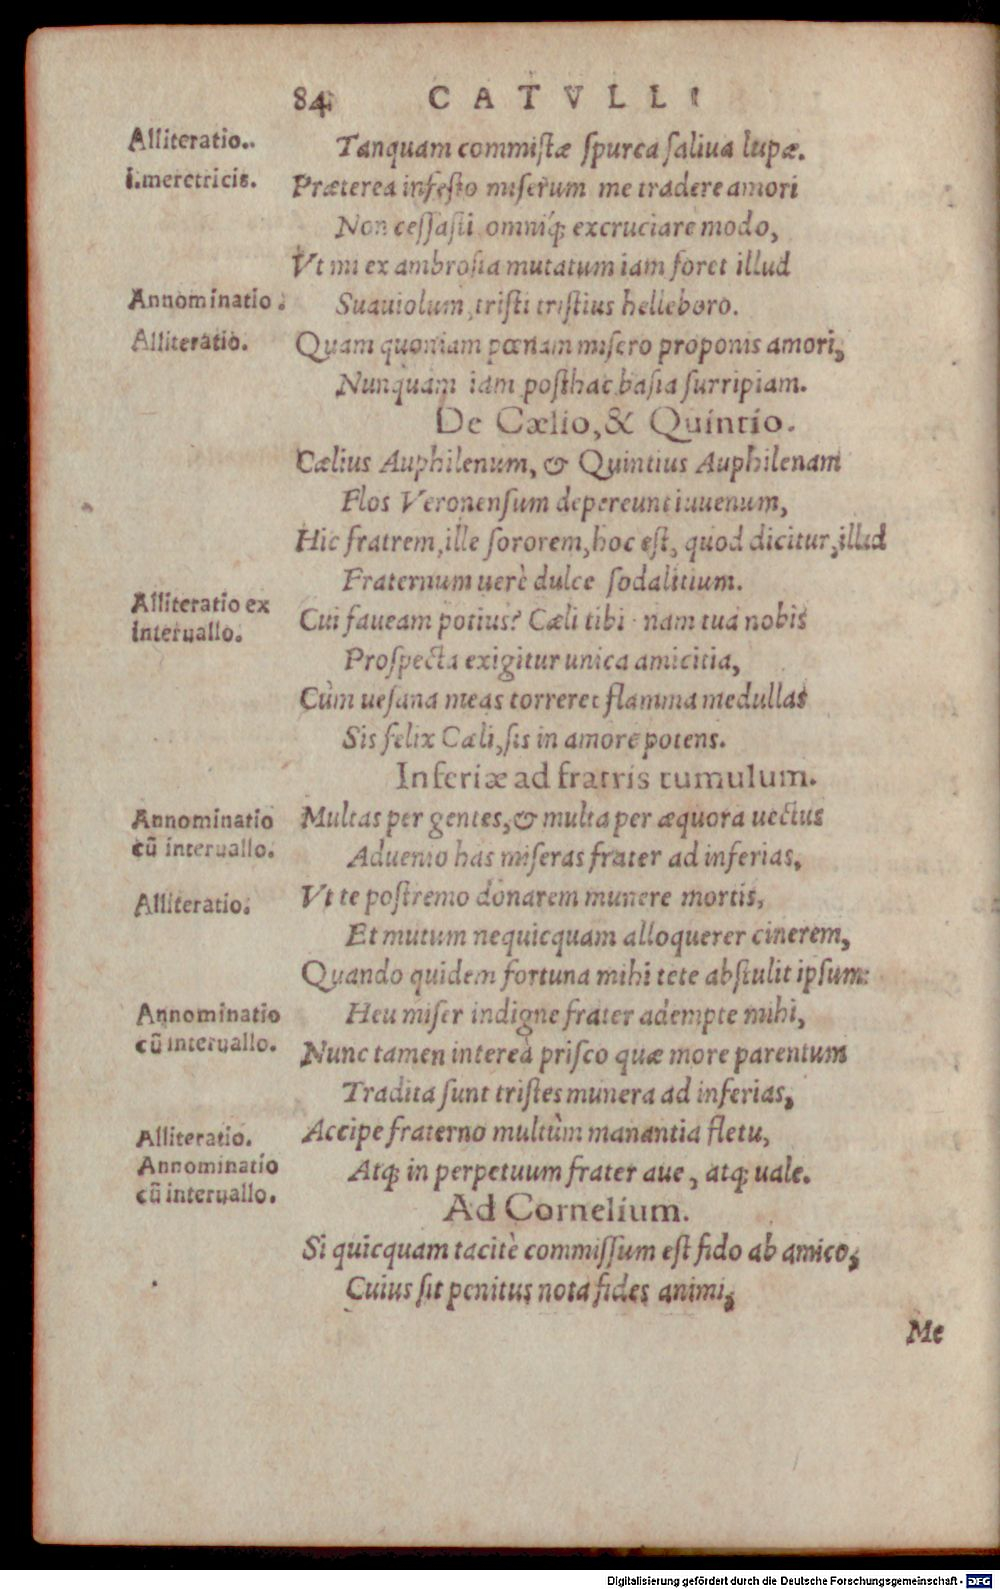 84 CATVLLI
Alliteratio.
Tanquam commiſtæ ſpurca ſaliua lupæ.
i. meretricis.
Præterea infeſto miſerum me tradere amori
Non ceſſaſti omniq́; excruciare modo,
Vt mi ex ambroſia mutatum iam foret illud
Annominatio.
Suauiolum, triſti triſtius helleboro.
Alliteratio.
Quam quoniam pœnam miſero proponis amori,
Nunquam iam poſthac baſia ſurripiam.
De Cælio, & Quintio.
Cælius Auphilenum, & Quintius Auphilenam
Flos Veronenſum depereunt iuuenum,
Hic fratrem, ille ſororem, hoc eſt, quod dicitur, illud
Fraternum uerè dulce ſodalitium.
Alliteratio ex
interuallo.
Cui faueam potius? Cæli tibi · nam tua nobis
Proſpecta exigitur unica amicitia,
Cùm ueſana meas torreret flamma medullas
Sis felix Cæli, ſis in amore potens.
Inferiæ ad fratris tumulum.
Annominatio
cū interuallo.
Multas per gentes, & multa per æquora uectus
Aduenio has miſeras frater ad inferias,
Alliteratio.
Vt te poſtremo donarem munere mortis,
Et mutum nequicquam alloquerer cinerem,
Quando quidem fortuna mihi tete abſtulit ipſum:
Annominatio
cū interuallo.
Heu miſer indigne frater adempte mihi,
Nunc tamen interea priſco quæ more parentum
Tradita ſunt triſtes munera ad inferias,
Alliteratio.
Accipe fraterno multùm manantia fletu,
Annominatio
cū interuallo.
Atq; in perpetuum frater aue, atq; uale.
Ad Cornelium.
Si quicquam tacitè commiſſum eſt fido ab amico,
Cuius ſit penitus nota fides animi,
Me
Digitalisierung gefördert durch die Deutsche Forschungsgemeinschaft - DFG